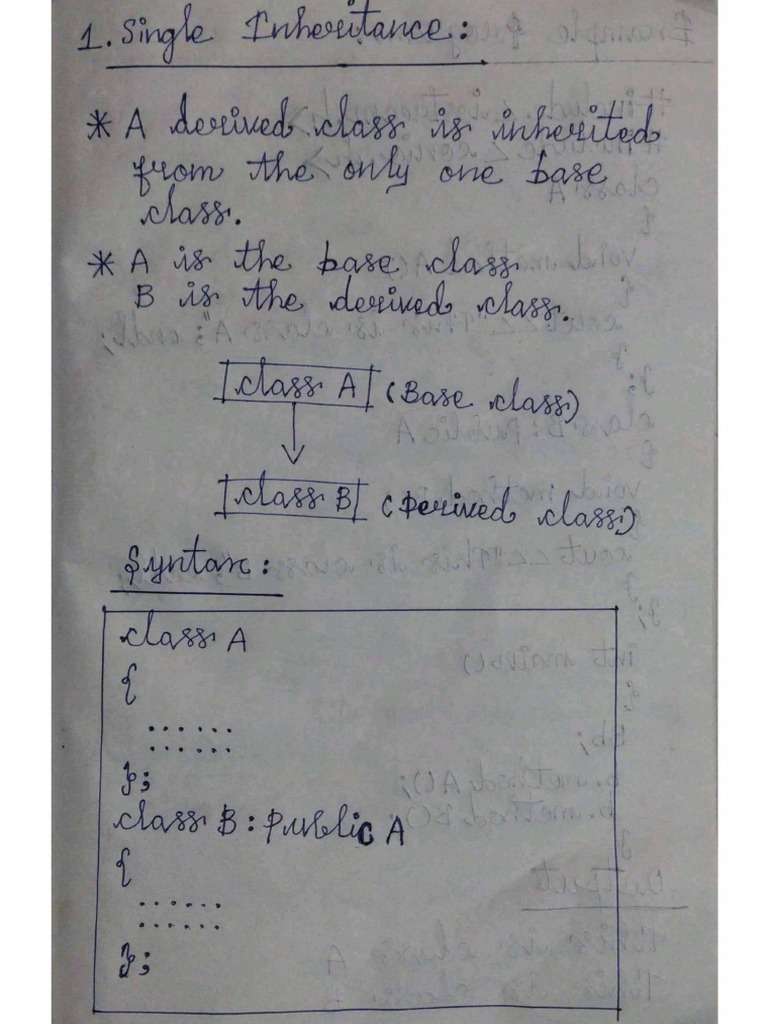 1. Single Inheritance:
* A derived class is inherited
from the only one base
class.
* A is the base class
B is the derived class.
class A (Base class)
class B (Derived class)
Syntax:
class A
{
......
......
};
class B : public A
{
......
......
};